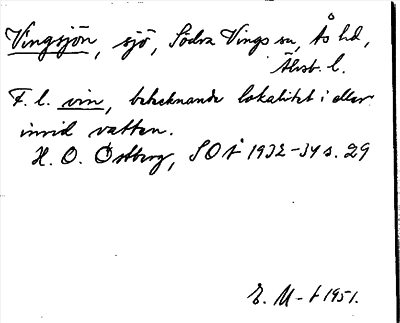 Vingsjön, sjö, Södra Vings sn, Ås hd,
Älvsb. l.
F. l. vin, betecknande lokalitet i eller
invid vatten.
H. O. Östberg, SOÅ 1932-34 s. 29
E. M-t 1951.